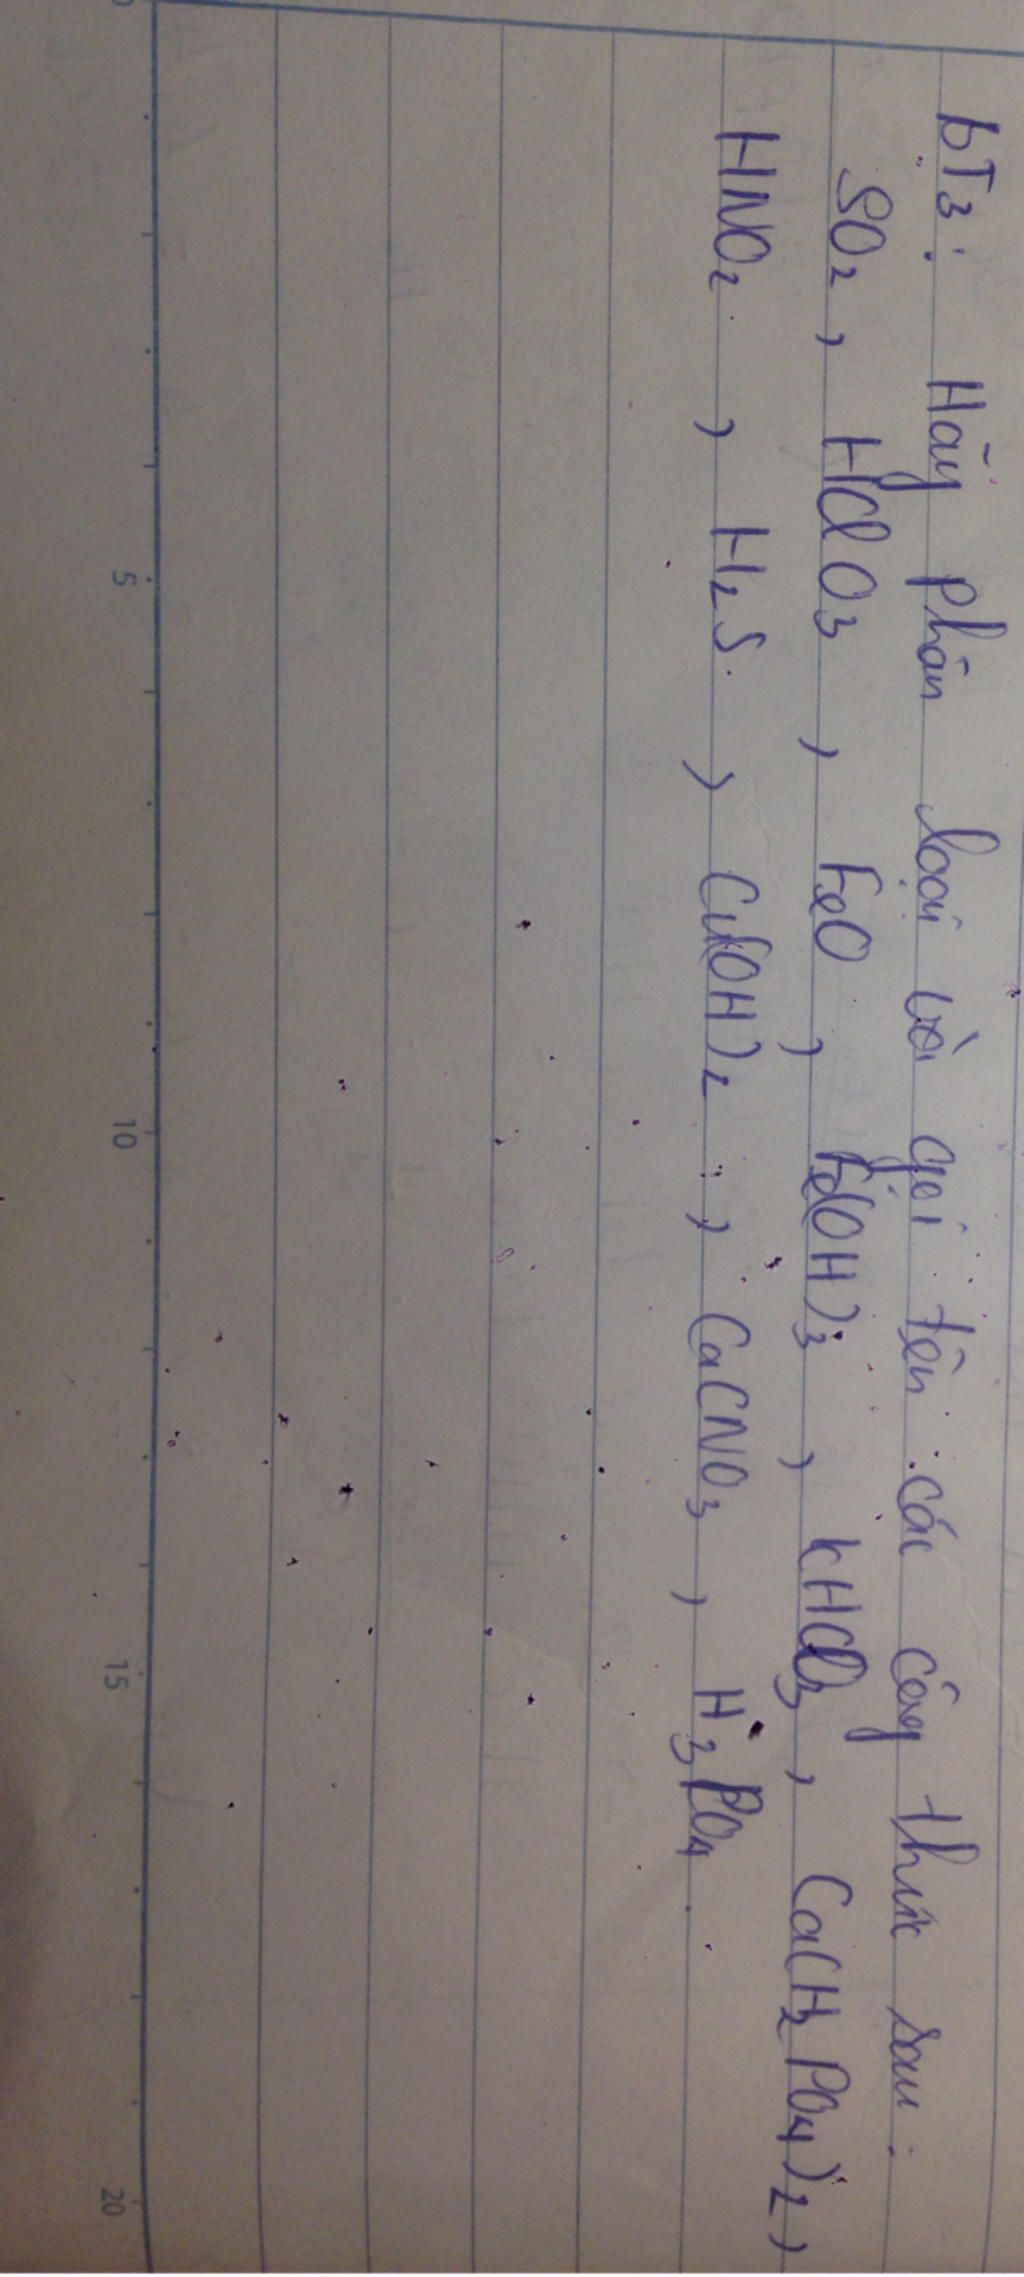 bT3: Hãy phân loại và gọi tên các công thức sau:
SO2, HClO3, FeO, Fe(OH)3, KHCO3, Ca(H2PO4)2,
HNO2, H2S, Cu(OH)2, CaCNO3, H3PO4.
5 10 15 20